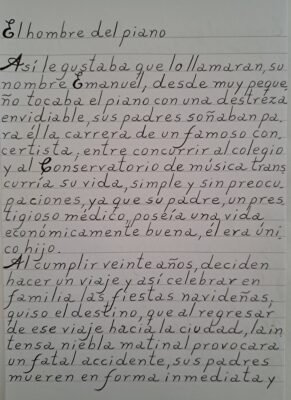 El hombre del piano
Así le gustaba que lo llamaran, su
nombre Emanuel, desde muy peque
ño tocaba el piano con una destreza
envidiable, sus padres soñaban pa-
ra él la carrera de un famoso con-
certista, entre concurrir al colegio
y al Conservatorio de música trans
curría su vida, simple y sin preocu
paciones, ya que su padre, un pres
tigioso médico, poseía una vida
económicamente buena, él era úni
co hijo.
Al cumplir veinte años, deciden
hacer un viaje y así celebrar en
familia las fiestas navideñas,
quiso el destino, que al regresar
de ese viaje hacia la ciudad, la in
tensa niebla matinal provocara
un fatal accidente, sus padres
mueren en forma inmediata y